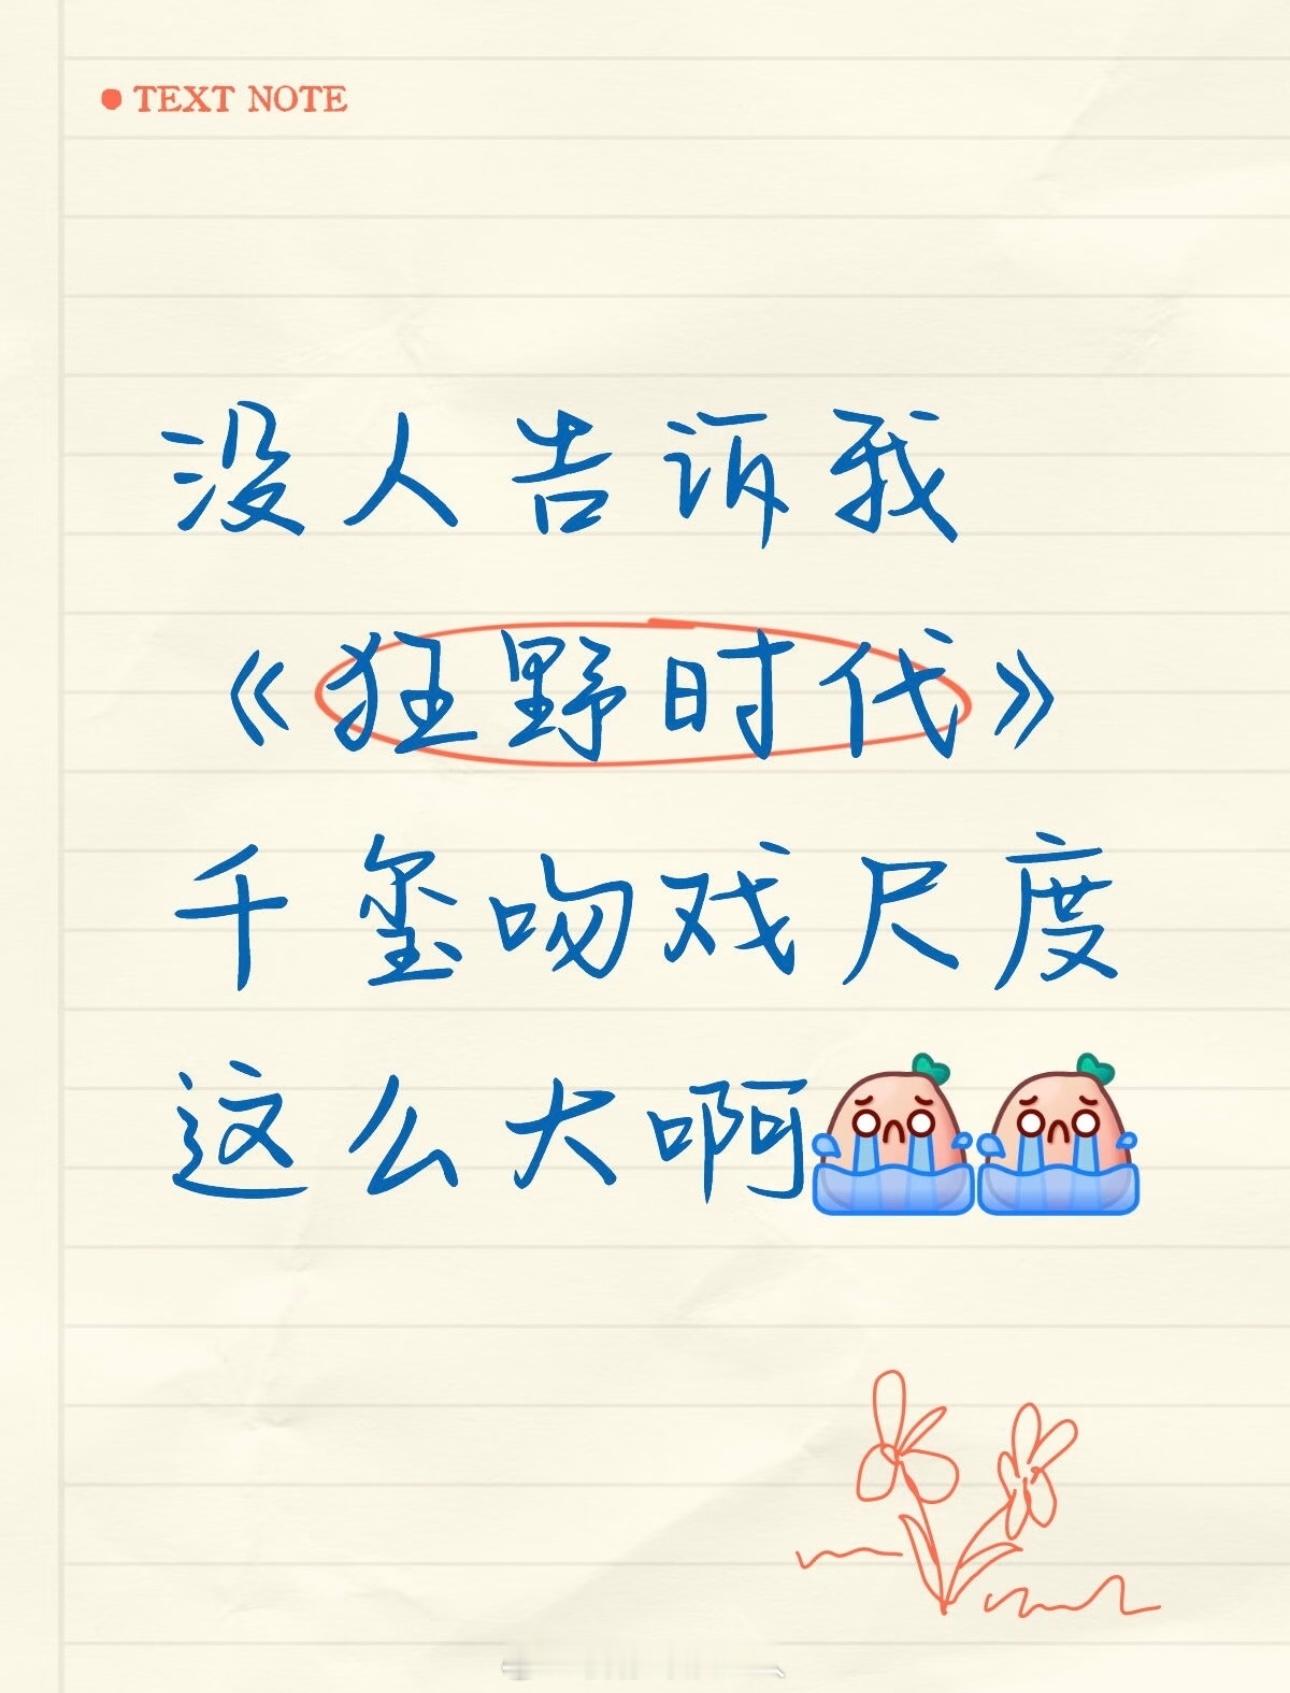 TEXT NOTE
没人告诉我
《狂野时代》
千玺吻戏尺度
这么大啊